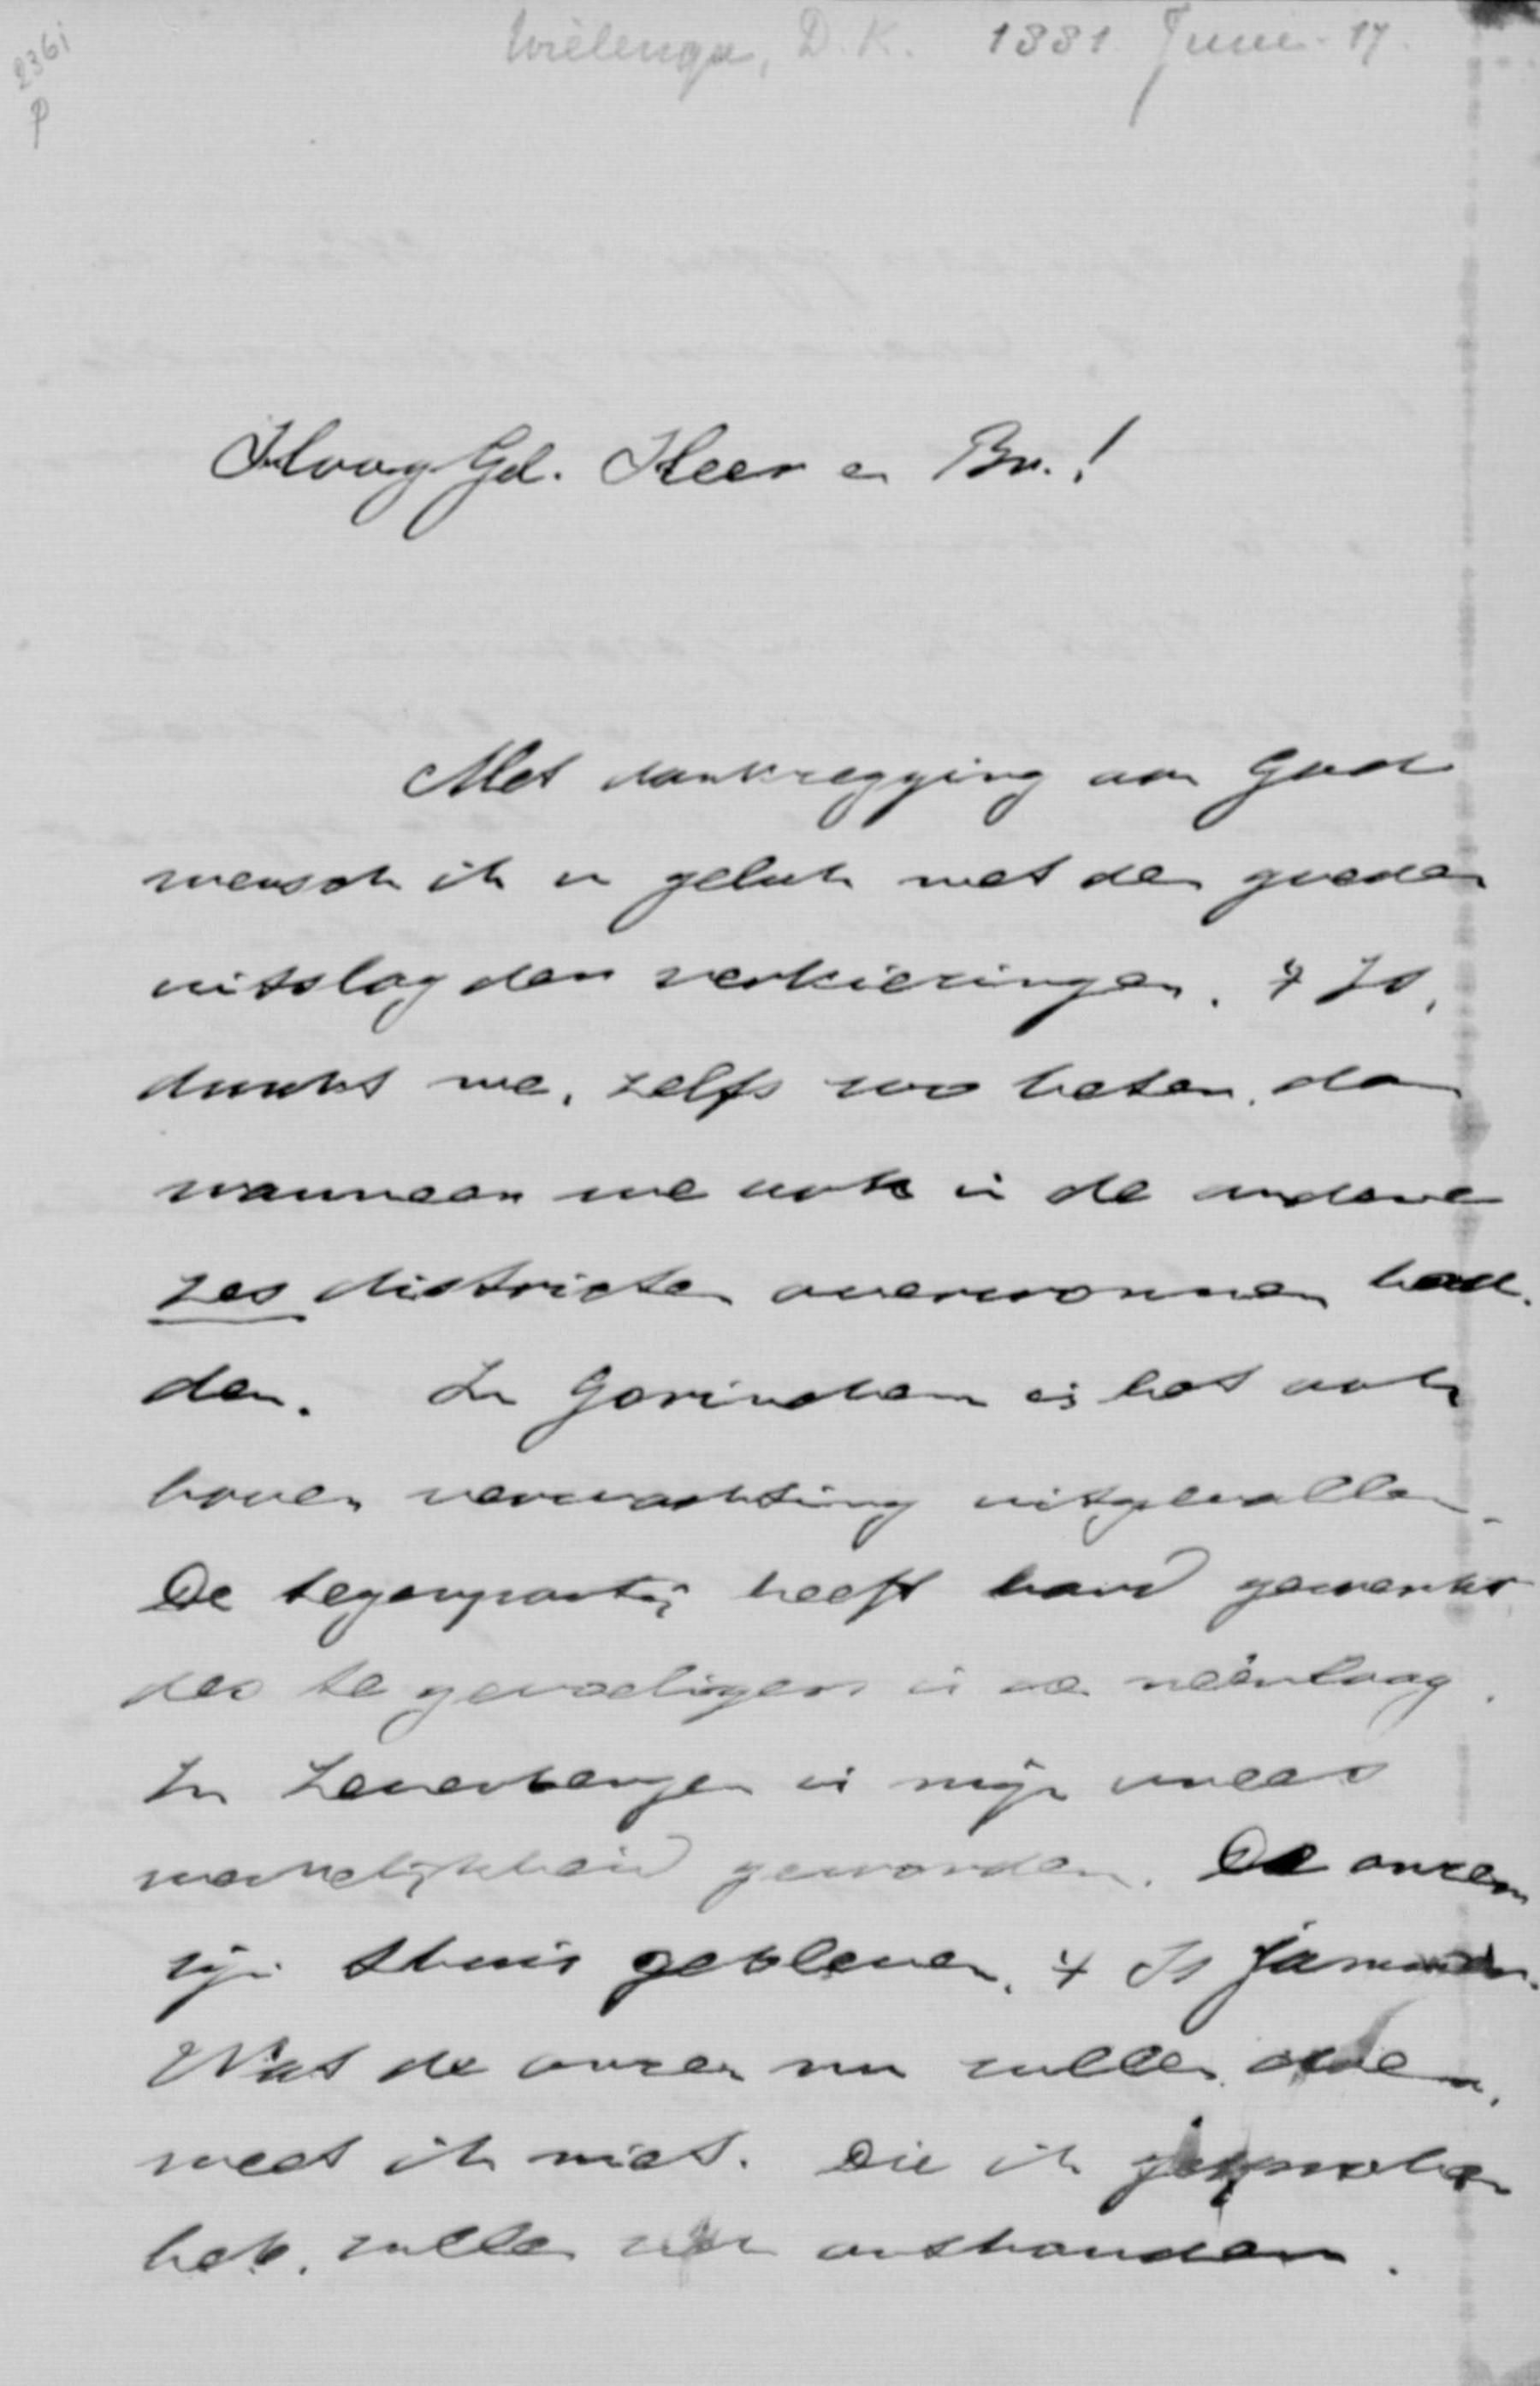 Wielenga, D.K. 1881 Juni 17.
2361
P
HoogGel. Heer en Br.!
Met dankzegging aan God
wensch ik u geluk met den goeden
uitslag der verkiezingen. 't Is,
dunkt me, zelfs zoo beter, dan
wanneer we ook in de andere
zes districten overwonnen had-
den. In Gorinchem is het ook
boven verwachting uitgevallen.
De tegenpartij heeft hard gewerkt
des te gevoeliger is de neêrlaag.
In Zevenbergen is mijn vrees
werkelijkheid geworden. De onzen
zijn thuis gebleven. 't Is jammer.
Wat de onzen nu zullen doen,
weet ik niet. Die ik gesproken
heb, zullen zich onthouden.